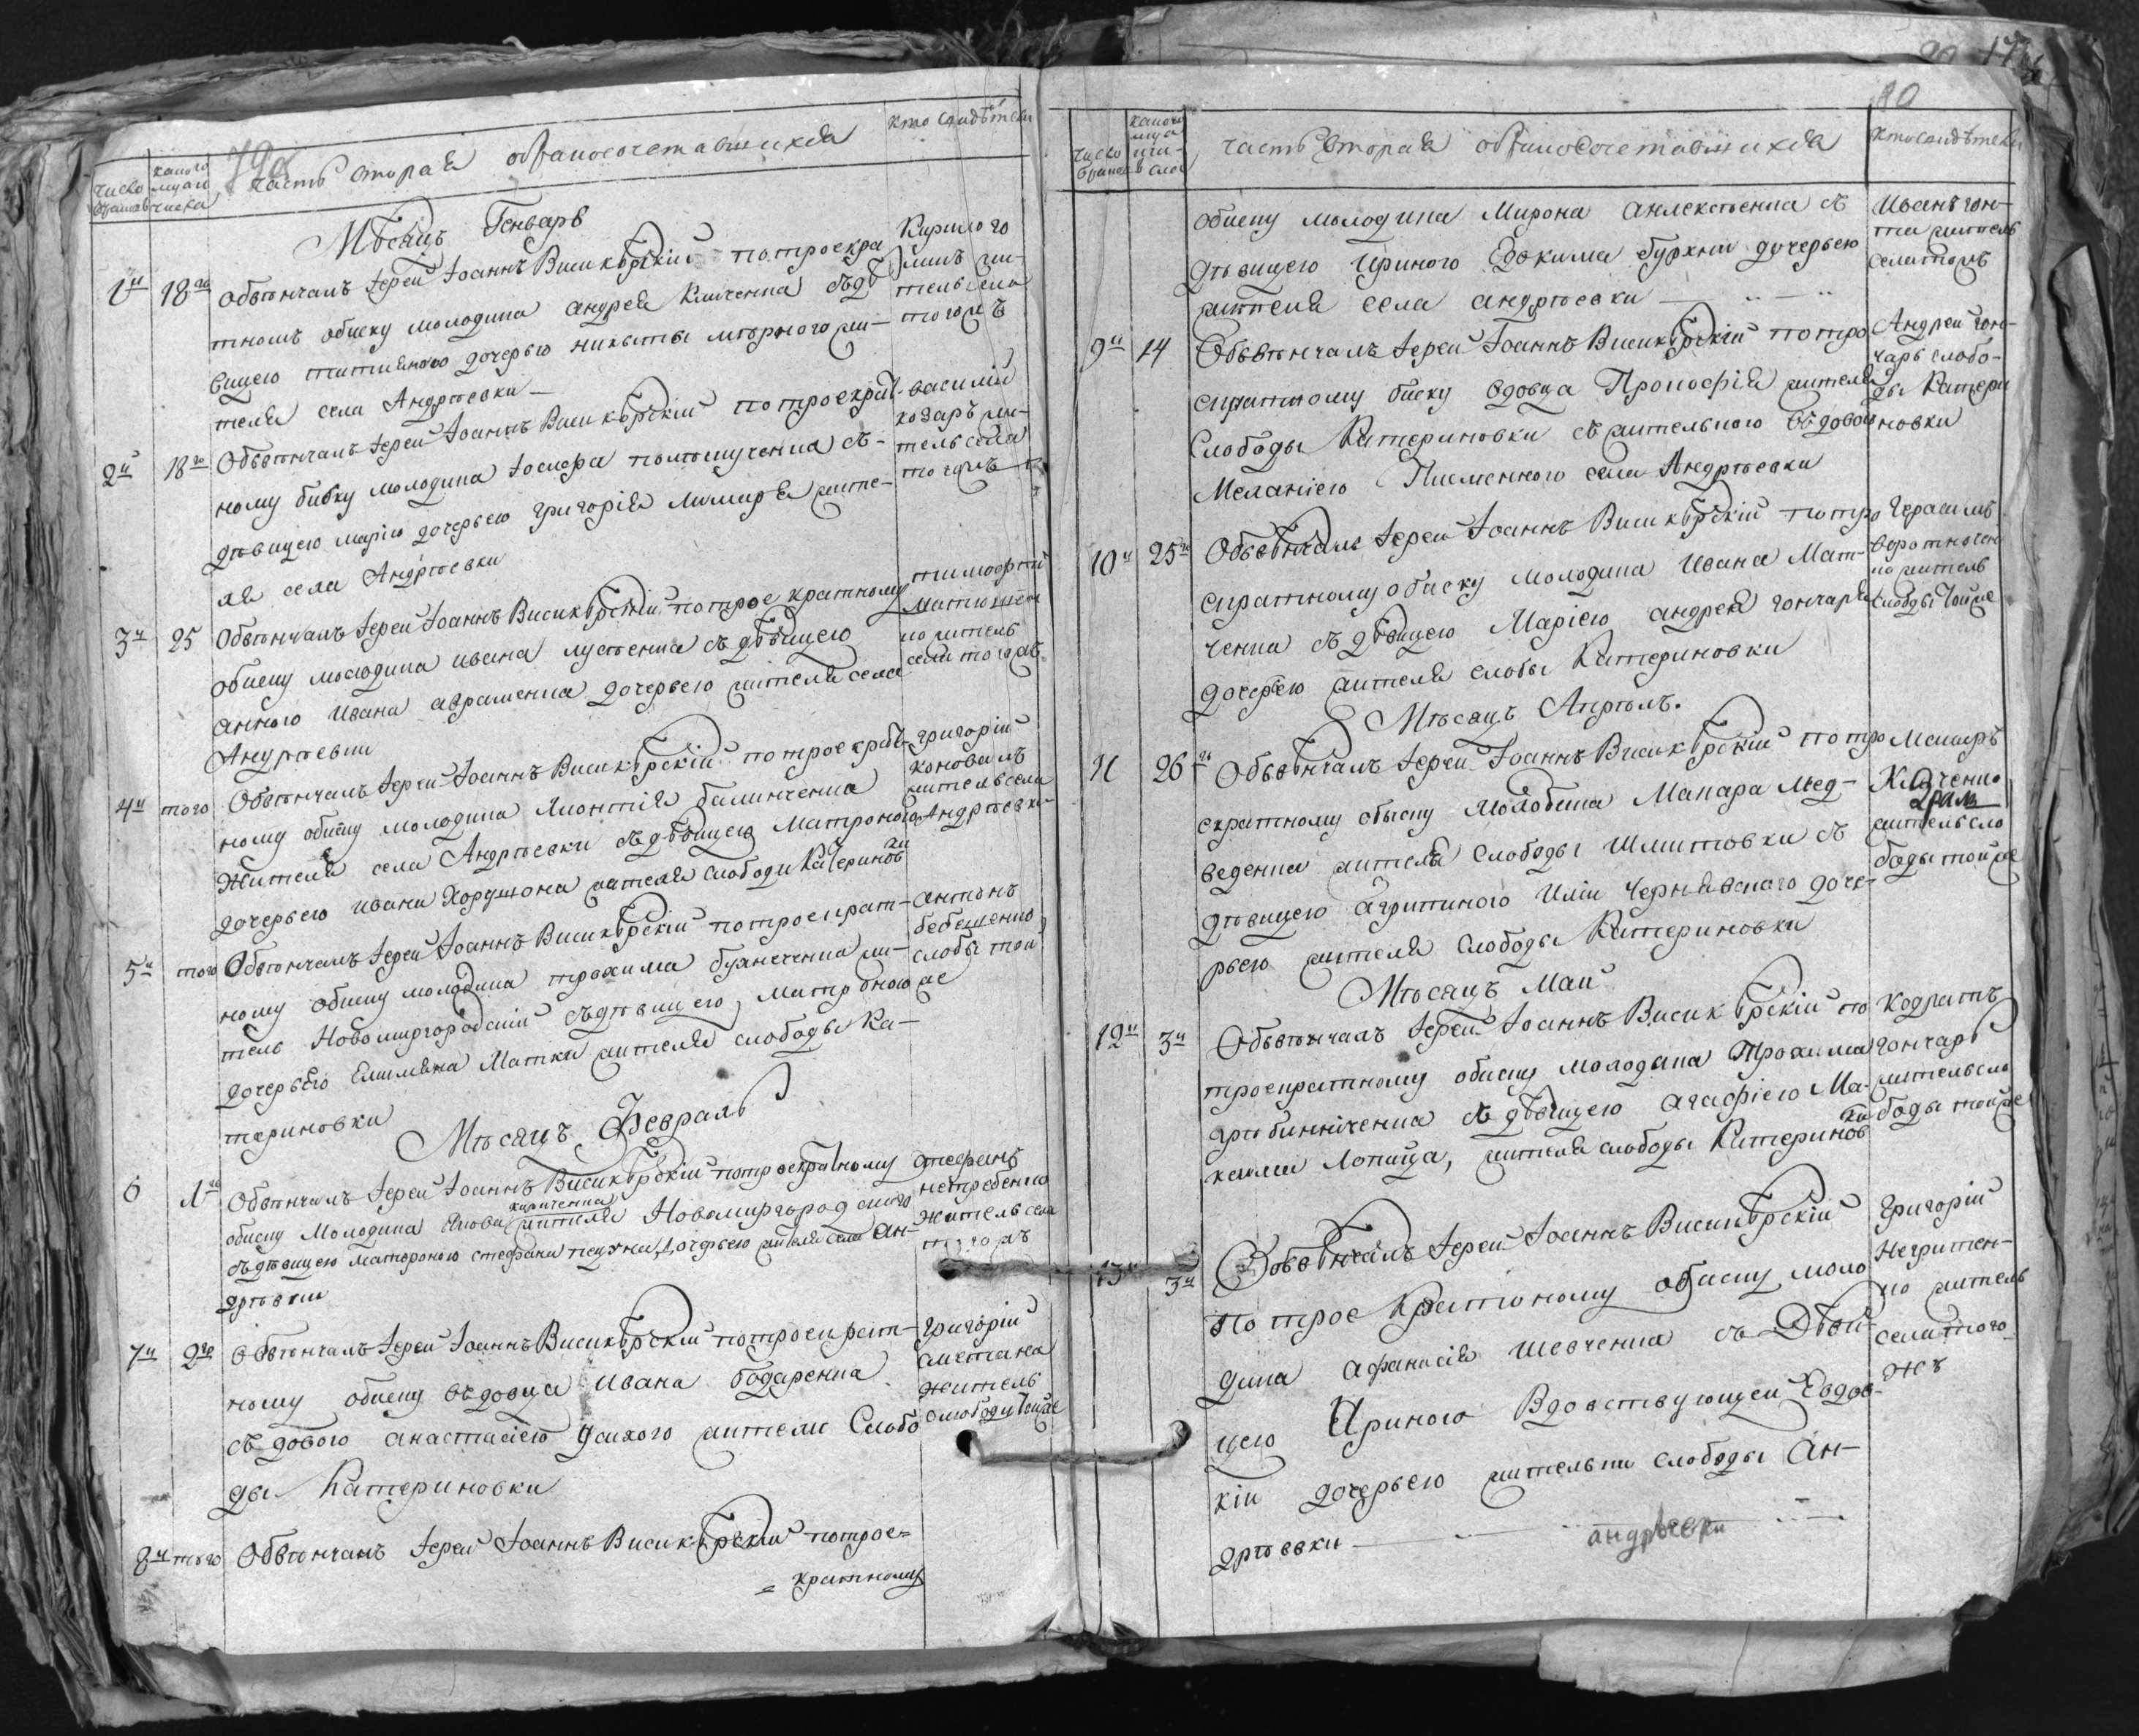 79 об
число браковъ
какого м҃ца и числа
часть вторая обракосочетавшихся
кто свидѣтели
Мѣсяцъ Генварь
1й 18го Обвѣнчалъ Іерей Іоаннъ Висикѣрскій по троекра
тномъ обиску молодика андрея Климченка съ дѣ
вицею татияною дочерью никиты мѣрного жи-
теля села Андрѣевки
Кирило го
жи-
тель села
того жъ
2й 18го Обвѣнчалъ Іерей Іоаннъ Висикѣрскій по троекрат-
ному биску молодика Іосифа съ-
дѣвицею марією дочерью григорія лимаря жите-
ля села Андрѣевки
василій
козаръ жи-
тель села
того жъ
3й 25 Обвѣнчалъ Іерей Іоаннъ Висикѣрскій по троекратному
обиску молодика ивана лустенка съ дѣвицею
анною ивана авраменка дочерью жителя села
Андрѣевки
тимофей
Матюшен
ко житель
села того жъ
4й того Обвѣнчалъ Іерей Іоаннъ Висикѣрскій по троекрат-
ному обиску молодика Леонтія балинченка
жителя села Андрѣевки съ дѣвицею Матроною
дочерью ивана Хордзиона жителя слободи Катеринов
ки
григорій
коновалъ
житель села
Андрѣевки
5й того Обвѣнчалъ Іерей Іоаннъ Висикѣрскій по троекрат-
ному обиску молодика трохима жи-
тель Новомиргородскій съ дѣвицею Матроною
дочерью Емилияна Матки жителя слободы Ка-
териновки
антонъ
бебешенко
слобы той
же
Мѣсяцъ Февраль
6 1го Обвѣнчалъ Іерей Іоаннъ Висикѣрскій по троекратному
обиску Молодика Якова кириченка жителя Новомиргородского
съ дѣвицею Матроною стефана дочерью жителя села Ан-
дрѣевки
стефанъ
нетребенко
житель села
того жъ
7й 2го Обвѣнчалъ Іерей Іоаннъ Висикѣрскій по троекрат-
ному обиску въдовца Ивана бодаренка
съ довою анастасіею Усихого жители Слобо
ды Катериновки
григорій
сметана
житель
слободи тойже
8й того Обвѣнчалъ Іерей Іоаннъ Висикѣрскій по трое=
= кратному
80
число браков
часть вторая обракосочетавшихся
кто свидѣтели
обиску молодика Мирона Анлексеенка съ
дѣвицею Ириною Евдокима бурхни дочерью
жителя села андрѣевки
Иванъ гон-
та житель
села тогожъ
9й 14 Обвѣнчалъ Іерей Іоаннъ Висикѣрскій по трое
скратному биску вдовца Прокофія жителя
Слободы Катериновки съ жительного въдовою
Меланіею Писменного села Андрѣевки
Андрей гон-
чаръ слобо-
ды Катери
новки
10й 25го Обвѣнчалъ Іерей Іоаннъ Висикѣрскій по трое
скратному обиску молодика Ивана Мат-
ченка съ дѣвицею Марією андрея гончаря
дочерью жителя слобы Катериновки
Герасимъ
воротнчен
ко житель
слободы тойже
Мѣсяцъ Апрѣль.
11 26го Обвѣнчалъ Іерей Іоаннъ Висикѣрскій по тро
скратному обыску Молодика Макара Мед-
веденка жителя слободы Шмитовки съ
дѣвицею Агрипиною Иліи Чернявского доче-
рью жителя слободы Катериновки
Климченко
житель сло
боды тойже
Мѣсяцъ Май
12й 3й Обвѣнчалъ Іерей Іоаннъ Висикѣрскій по
троекратному обиску молодика Трохима
съ дѣвицею агафіею Ма-
ксима Лопаты, жителя слободы Катеринов
ки
Кодратъ
гончаръ
житель сло
боды тойже
13й 3й Обвѣнчалъ Іерей Іоаннъ Висикѣрскій
по троекратному обиску моло
дика Афанасія шевченка съ дѣви
цею Ириною Вдовствующей Евдов-
кіи дочерью жительки слободы Ан-
дрѣевки
андрѣевки
Григорій
Негритен-
ко житель
села того
жъ